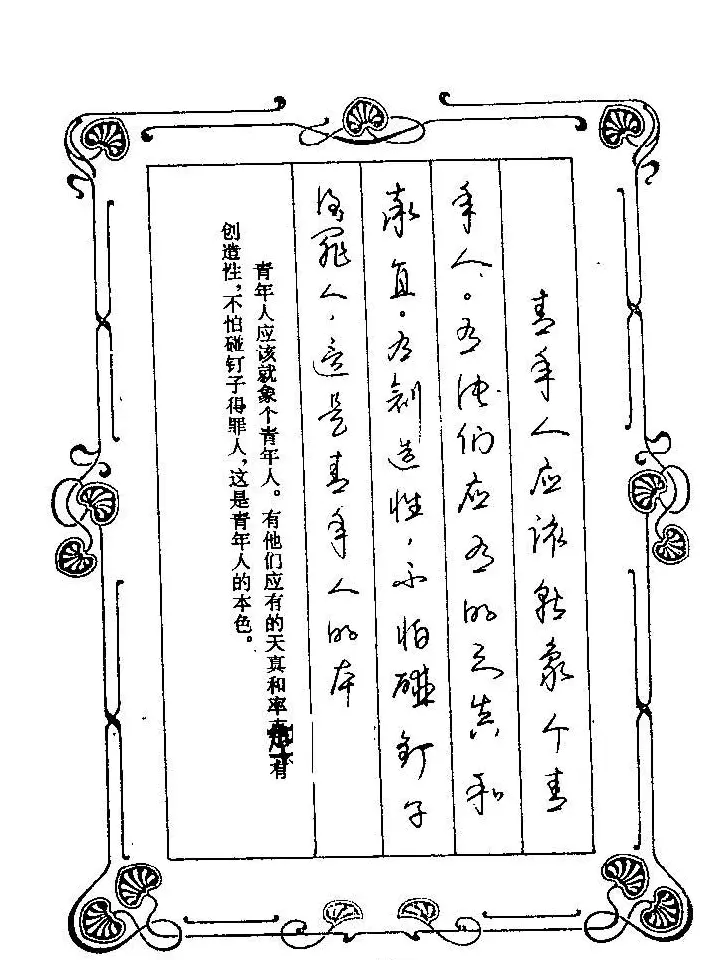 青年人应该就象个青
年人。有他们应有的天真和
率直。有創造性，不怕碰釘子
得罪人，這是青年人的本
青年人应该就象个青年人。有他们应有的天真和率有
创造性，不怕碰钉子得罪人，这是青年人的本色。